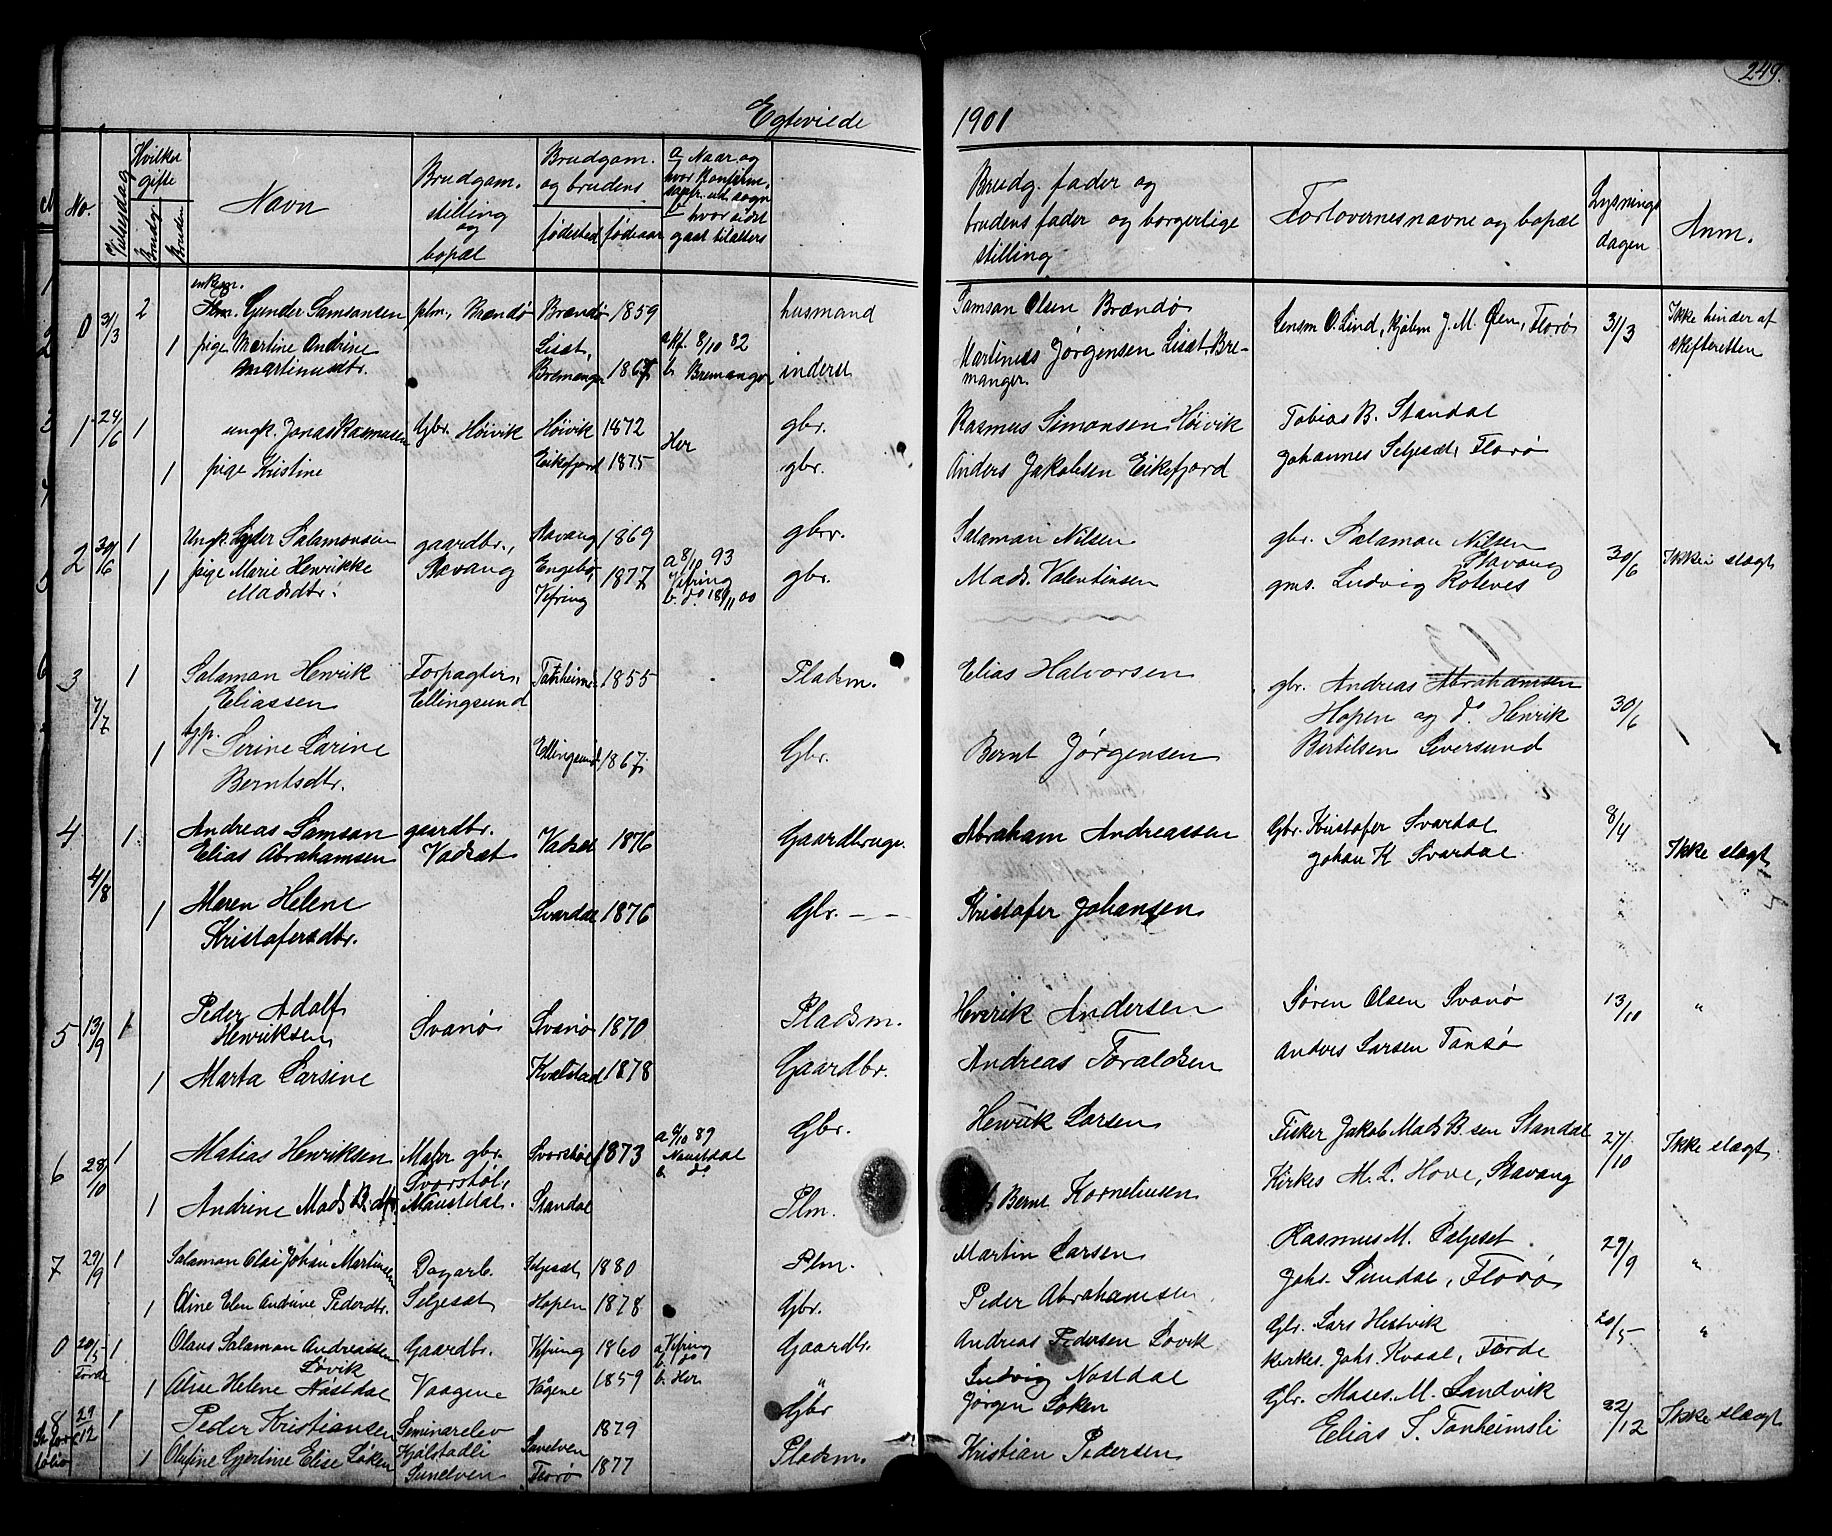 249.
Egteviede 1901
No. Vielsesdag Hvilket gifte Brudg. Bruden Navn Brudgom. stilling og bopæl Brudgom. og brudens fødested fødeaar a Naar og hvor Konfirm. b hvor sidst gaat tilalters
Brudg. fader og brudens fader og borgerlige stilling Forlovernes navne og bopæl Lysnings dagen Anm.
0 31/3 2 enkem. Gunder Samsonsen plm., Brændø Brændø 1859 husmand Samson Olsen Brændø Lensm O. Lind, Kjøbm J. M. Øen, Florø 31/3 Ikke hinder af skifteretten
1 pige Martine Andrine Martinusdtr. Liset, Bremanger 1867 a kf. 8/10 82 b. Bremanger inderst Martinus Jørgensen Liset, Bremanger.
1 24/6 1 ungk. Jonas Rasmussen Gbr. Høivik Høivik 1872 Her gbr. Rasmus Simonsen Høivik Tobias B. Standal
1 pige Kristine Eikefjord 1875 gbr. Anders Jakobsen Eikefjord Johannes Seljeset, Florø
2 30/6 1 Ungk. Lyder Salamonsen gaardbr., Stavang Stavang 1869 gbr. Salamon Nilsen gbr. Salamon Nilsen Stavang 30/6 Ikke i slægt
1 pige Marie Henrikke Madsdtr. Engebø, Vefring 1877 a 8/10 93 Vefring b. do 18/11 00 gbr. Mads Valentinsen gms. Ludvig Roteves
3 7/7 1 Salamon Henrik Eliassen Forpagter, Ellingsund Tonheim 1855 Pladsm. Elias Halvorsen gbr. Andreas Abrahamsen 30/6
Hopen og do Henrik
1 Serine Larine Berntsdtr. Ellingsund 1867 Gbr. Bernt Jørgensen Bertelsen Seversund
4 4/8 1 Andreas Samson Elias Abrahamsen gaardbr. Vadset Vadset 1876 Gaardbruger Abraham Andreassen Gbr. Kristofer Svardal 8/4 Ikke slægt
Johan K Svardal
1 Maren Helene Kristofersdtr. Svardal 1876 Gbr. - - Kristofer Johansen
5 13/9 1 Peder Adolf Henriksen Svanø Svanø 1870 Pladsm. Henrik Andersen Søren Olsen Svanø 13/10 "
1 Marta Larsine Kvalstad 1878 Gaardbr. Andreas Toraldsen Anders Larsen Tansø
6 28/10 1 Matias Henriksen gbr. Svorstøl, Naustdal. Svorstøl 1873 a 9/10 89 Naustdal b. do Gbr. Henrik Larsen Fisker Jakob Mads B.sen Standal 27/10 Ikke slægt
1 Andrine Mads B.dtr Standal Plm. Bernt Korneliusen Kirkes M. L. Hove, Stavang
7 29/9 1 Salamon Olai Johan Martinsen Dagarb. Seljeset Seljeset 1880 Plm. Martin Larsen Rasmus M. Seljeset 29/9 "
1 Oline Elen Andrine Pedersdtr. Hopen 1878 Gbr. Peder Abrahamsen Johs. Sundal, Florø
0 20/5 Førde 1 Olaus Salamon Andreassen Løvik Gaardbr. Vefring 1860 a Vefring b. do Gaardbr. Andreas Pedersen Løvik Gbr. Lars Hestvik 20/5 "
1 Alise Helene Nostdal Vaagene Vågene 1859 b. Her " Ludvig Nostdal Kirkes. Johs. Kvaal, Førde
8 29/12 1 Peder Kristiansen Seminarelev Kjølstadli Sunelven Sunelven 1879 Gbr Jørgen Løken Gbr. Moses M. Sandvik 22/12 Ikke slægt
1 Olufine Gjertine Elise Løken Florø 1877 Pladsm. Kristian Pedersen Elias S. Tonheimsli